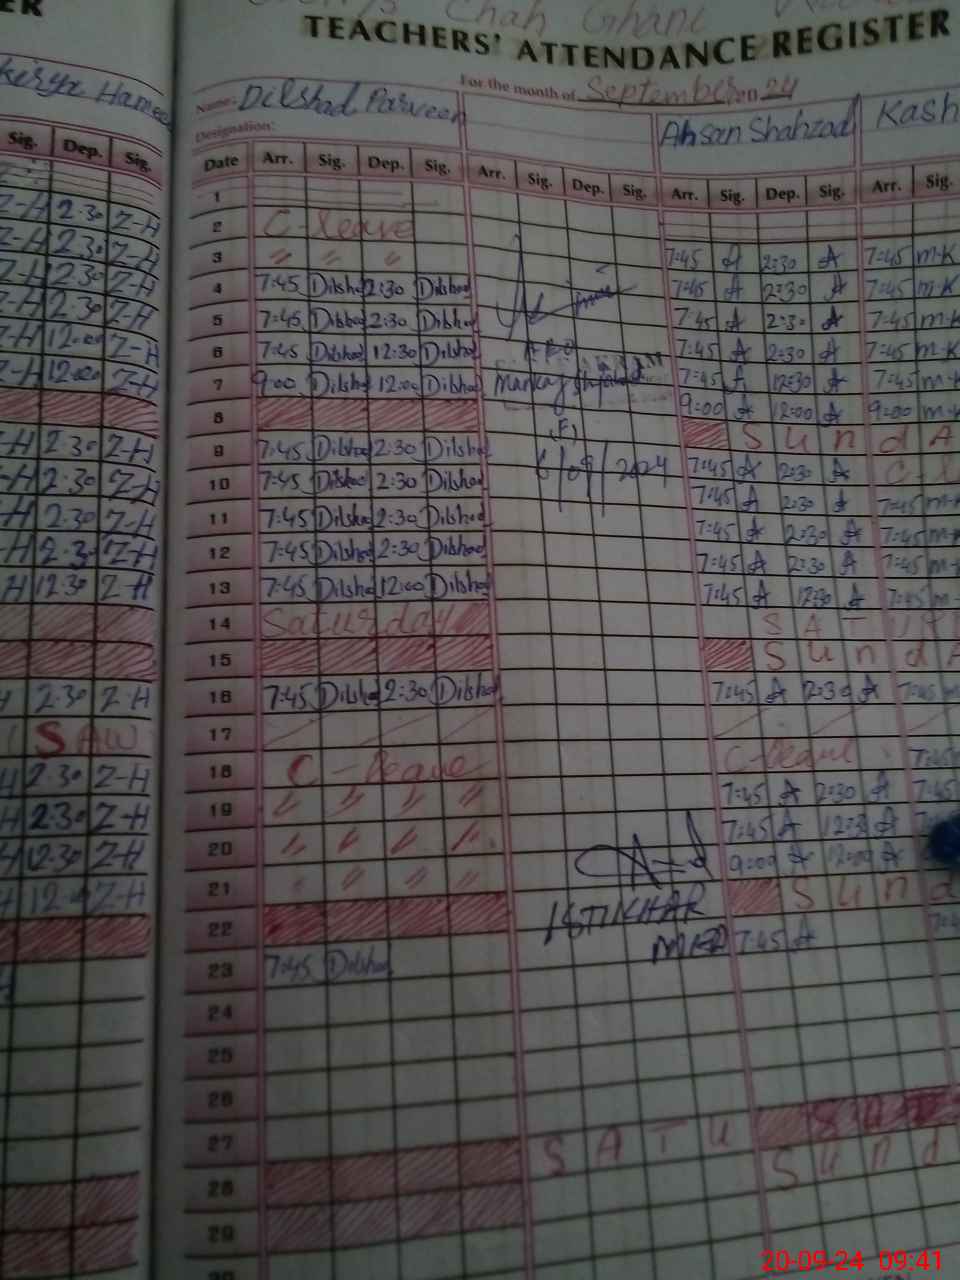 ER
Chah Ghani
TEACHERS' ATTENDANCE REGISTER
For the month of September 2024
Name: Dilshad Parveen Ahsan Shahzad Kash
Designation:
Sig. Dep. Sig. Date Arr. Sig. Dep. Sig. Arr. Sig. Dep. Sig. Arr. Sig. Dep. Sig. Arr. Sig.
1
Z-H 2:30 Z-H 2 C-leave
Z-H 2:30 Z-H 3 〃 〃 〃 7:45 A 2:30 A 7:45 m-K
Z-H 2:30 Z-H 4 7:45 Dilshad 2:30 Dilshad 7:45 A 2:30 A 7:45 m-K
Z-H 2:30 Z-H 5 7:45 Dilshad 2:30 Dilshad 7:45 A 2:30 A 7:45 m-K
Z-H 12:00 Z-H 6 7:45 Dilshad 12:30 Dilshad 7:45 A 2:30 A 7:45 m-K
Z-H 12:00 Z-H 7 9:00 Dilshad 12:00 Dilshad Markaz 7:45 A 12:30 A 7:45 m-K
8 9:00 A 12:00 A 9:00 m-K
(F) S u n d A
-H 2:30 Z-H 9 7:45 Dilshad 2:30 Dilshad 6/09/2024 7:45 A 2:30 A
-H 2:30 Z-H 10 7:45 Dilshad 2:30 Dilshad 7:45 A 2:30 A 7:45 m-K
H 2:30 Z-H 11 7:45 Dilshad 2:30 Dilshad 7:45 A 2:30 A 7:45 m-
-H 2:30 Z-H 12 7:45 Dilshad 2:30 Dilshad 7:45 A 2:30 A 7:45 m-
H 12:30 Z-H 13 7:45 Dilshad 12:00 Dilshad 7:45 A 12:30 A 7:45 m-
14 Saturday S A T U R
15 S u n d A
2:30 Z-H 16 7:45 Dilshad 2:30 Dilshad 7:45 A 2:30 A 7:45 m
SAW 17
2:30 Z-H 18 C-leave C-leave 7:45
2:30 Z-H 19 〃 〃 〃 〃 7:45 A 2:30 A 7:45
12:30 Z-H 20 〃 〃 〃 〃 7:45 A 12:3 A
12:00 Z-H 21 〃 〃 〃 〃 9:00 A 12:00 A
22 IFTIKHAR S u n d
23 7:45 Dilshad 7:45 A
24
25
26
27 S A T U
28 S u n d
29
20-09-24 09:41